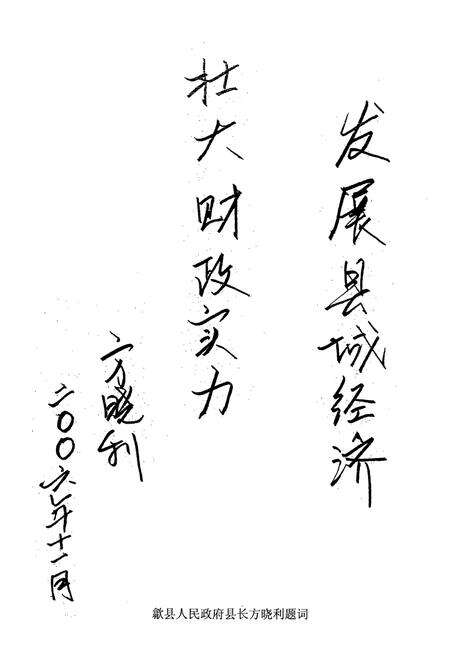 发展县城经济
壮大财政实力
方晓利
二〇〇六年十一月
歙县人民政府县长方晓利题词